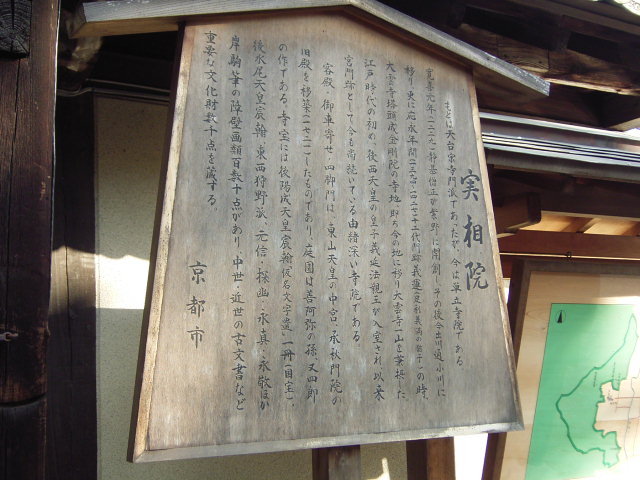 実相院
もとは天台宗寺門派であったが、今は単立寺院である。
寛喜元年(一二二九)静基僧正が紫野に開創し、その後今出川通小川に
移り、更に応永年間(一三九四~一四二七)十三代門跡義運(足利義満の
の時、
大雲寺塔頭成金剛院の寺地、即ち今の地に移り大雲寺一山を兼摂した
江戸時代の初め、後西天皇の皇子義延法親王が入室され、以来
宮門跡として今も尚続いている由緒深い寺院である。
客殿・御車寄せ・四脚門は、東山天皇の中宮・承秋門院の
旧殿を移築(一七二一)したものであり、庭園は善阿弥の孫、又四郎
の作である。寺宝には後陽成天皇宸翰仮名文字遣一冊(国宝)、
後水尾天皇宸翰、東西狩野派、元信・探幽・永真・永敬ほか
岸駒筆の障壁画類百数十点があり、中世・近世の古文書など
重要な文化財数十点を蔵する。
京都市